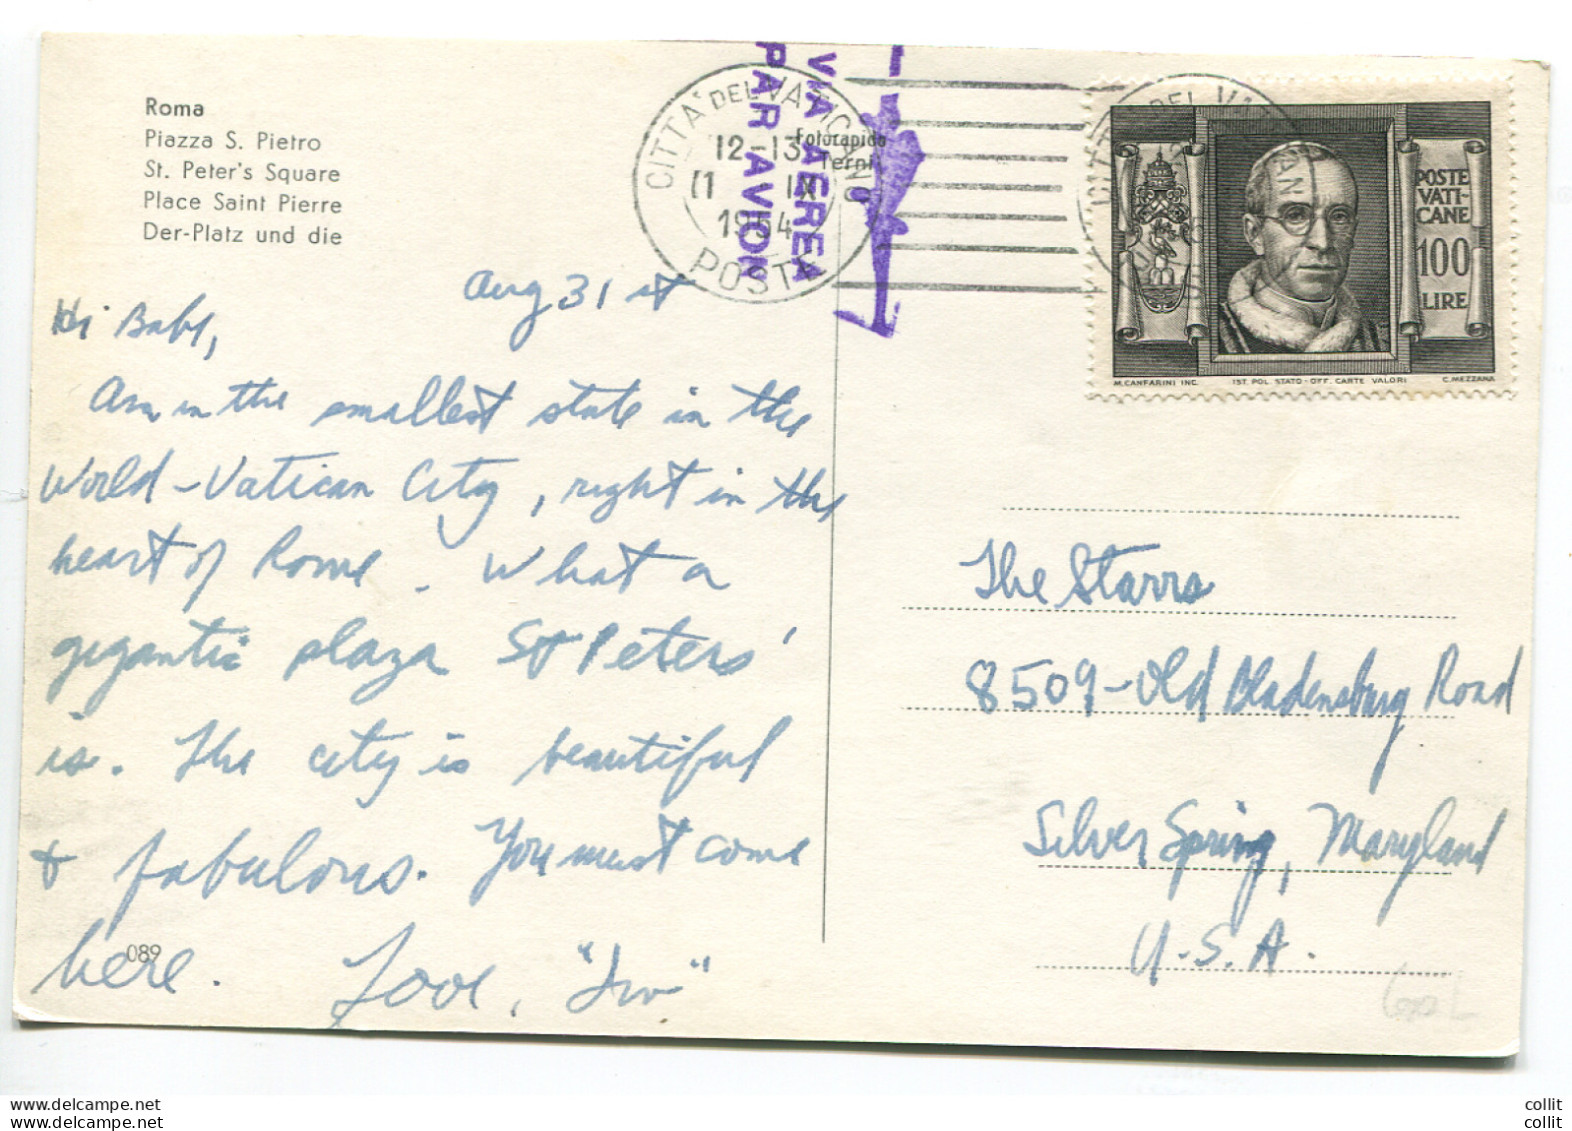 Roma
Piazza S. Pietro
St. Peter's Square
Place Saint Pierre
Der-Platz und die
CITTA' DEL VATICANO
12-13
1 IX
1954
POSTA
VIA AEREA
PAR AVION
Fotorapida
Terni
POSTE
VATI-
CANE
100
LIRE
M. CANFARINI INC.
IST. POL. STATO - OFF. CARTE VALORI
C. MEZZANA
Aug 31 st
Hi Baby,
Am in the smallest state in the
World - Vatican City, right in the
heart of Rome. What a
gigantic plaza St Peters'
is. The city is beautiful
+ fabulous. You must come
here. Love, "Irv"
089
The Starrs
8509 - Old Bladensburg Road
Silver Spring, Maryland
U.S.A.
www.delcampe.net
www.delcampe.net
collit
collit